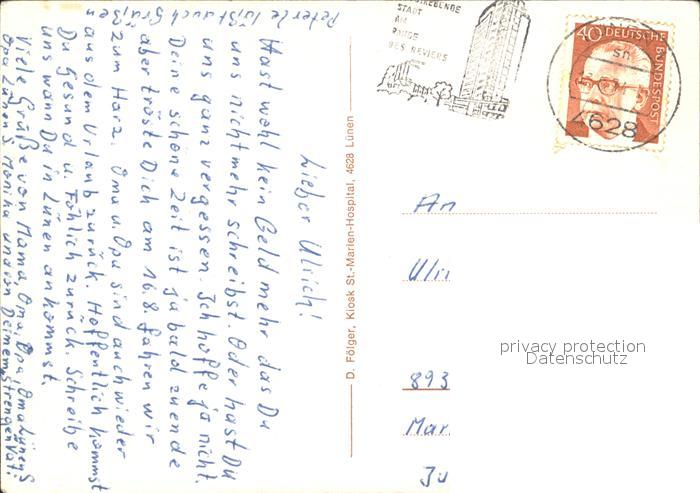 Lieber Ulrich!
Hast wohl kein Geld mehr das Du
uns nicht mehr schreibst. Oder hast Du
uns ganz vergessen. Ich hoffe ja nicht.
Deine schöne Zeit ist ja bald zuende
aber tröste Dich am 16.8. fahren wir
zum Harz. Oma u. Opa sind auch wieder
aus dem Urlaub zurück. Hoffentlich kommst
Du Gesund u. Föhlich zurück. Schreibe
uns wann Du in Lünen ankommst.
Viele Grüße von Mama, Oma, Opa, Oma Lünen S
Opa Lünen S Monika und von Deinem Strengen Vati
Peterle läßt auch Grüßen
D. Fölger, Kiosk St.-Marien-Hospital, 4628 Lünen
STREBENDE
STADT
AM
RANDE
DES REVIERS
40 DEUTSCHE BUNDESPOST
4628
An
Ulri
893
Mar
Ju
privacy protection
Datenschutz